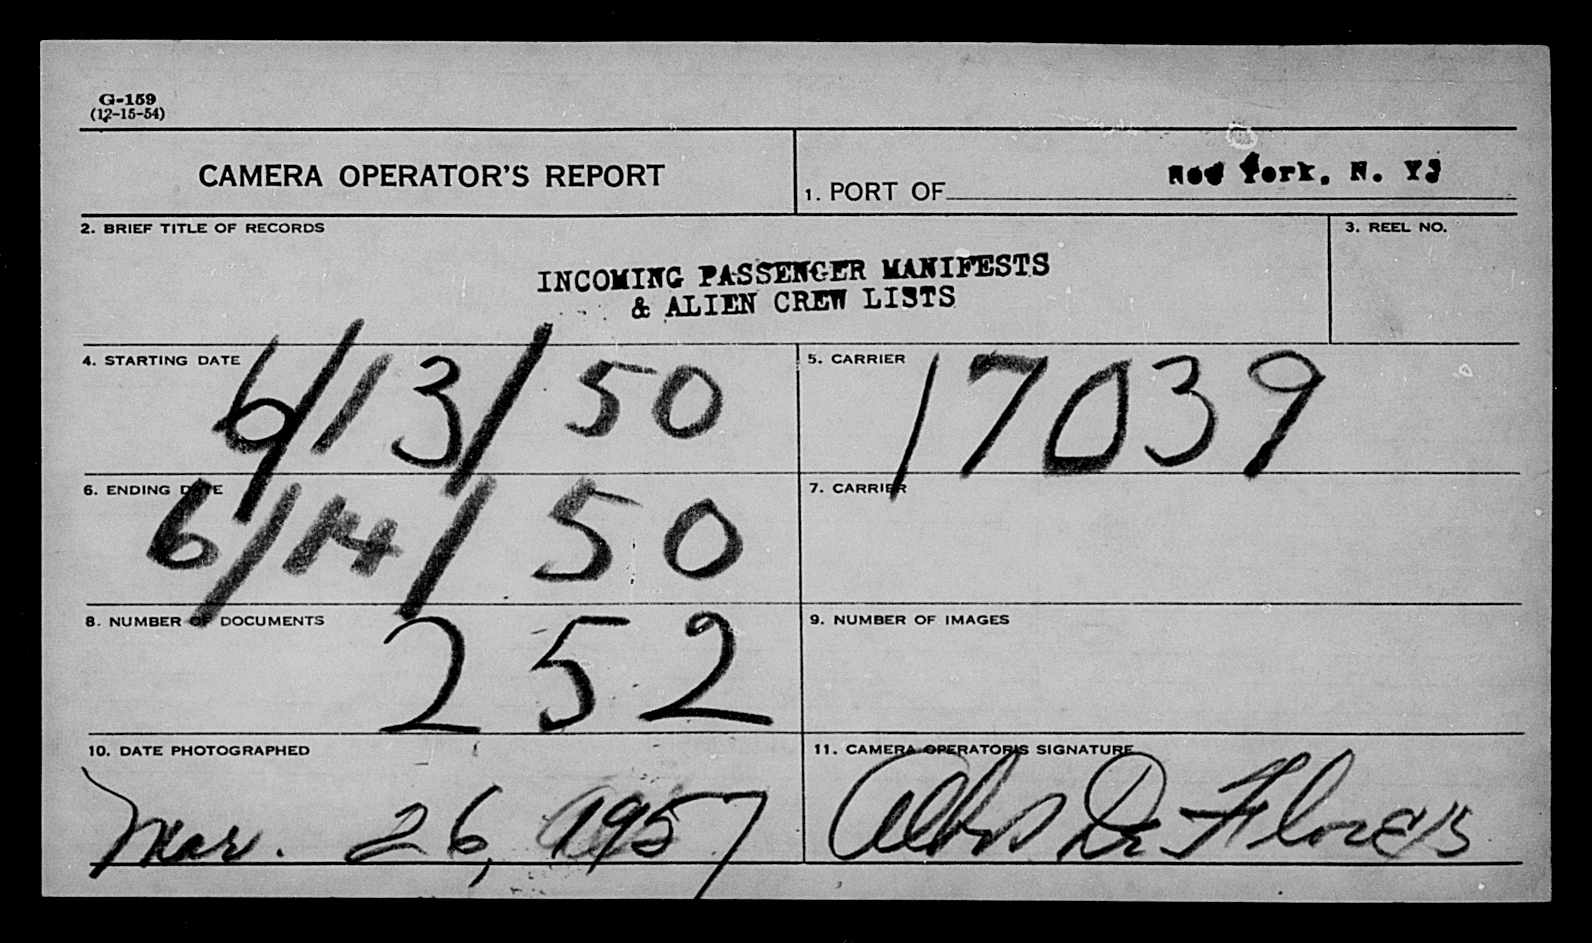 G-159
(12-15-54)
CAMERA OPERATOR'S REPORT
1. PORT OF New York, N. Y.
2. BRIEF TITLE OF RECORDS
3. REEL NO.
INCOMING PASSENGER MANIFESTS
& ALIEN CREW LISTS
4. STARTING DATE 6/13/50
5. CARRIER 17039
6. ENDING DATE 6/14/50
7. CARRIER
8. NUMBER OF DOCUMENTS 252
9. NUMBER OF IMAGES
10. DATE PHOTOGRAPHED
11. CAMERA OPERATOR'S SIGNATURE
Mar. 26, 1957
De